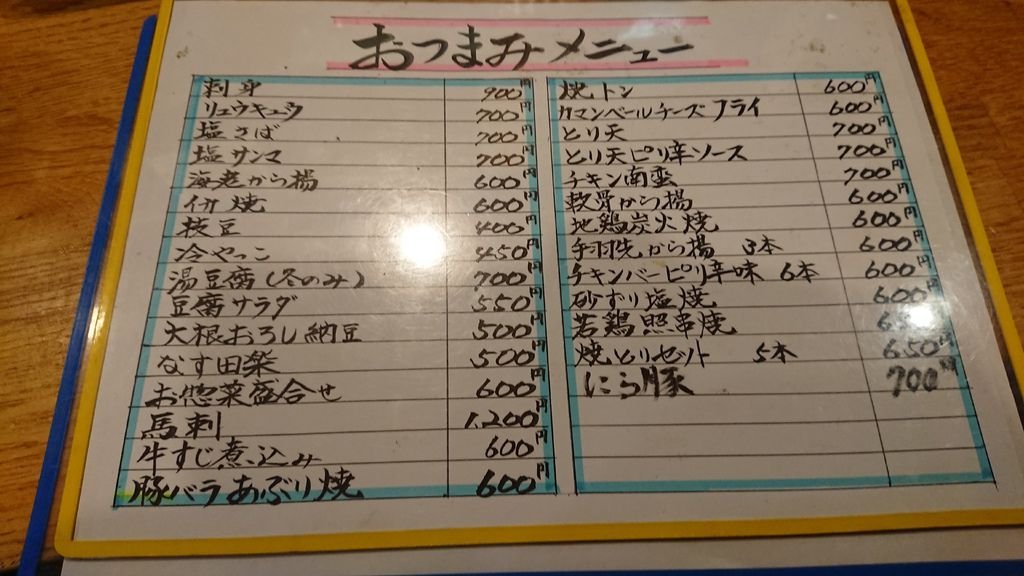 おつまみメニュー
刺身 900円
リュウキュウ 700円
塩さば 700円
塩サンマ 700円
海老から揚 600円
焼 600円
枝豆 400円
冷やっこ 450円
湯豆腐(冬のみ) 700円
豆腐サラダ 550円
大根おろし納豆 500円
なす田楽 500円
お惣菜盛合せ 600円
馬刺 1,200円
牛すじ煮込み 600円
豚バラあぶり焼 600円
焼トン 600円
カマンベールチーズフライ 600円
とり天 700円
とり天ピリ辛ソース 700円
チキン南蛮 700円
軟骨から揚 600円
地鶏炭火焼 600円
手羽先から揚 3本 600円
チキンバーピリ辛味 6本 600円
砂ずり塩焼 600円
若鶏照串焼
焼とりセット 5本 650円
にら豚 700円